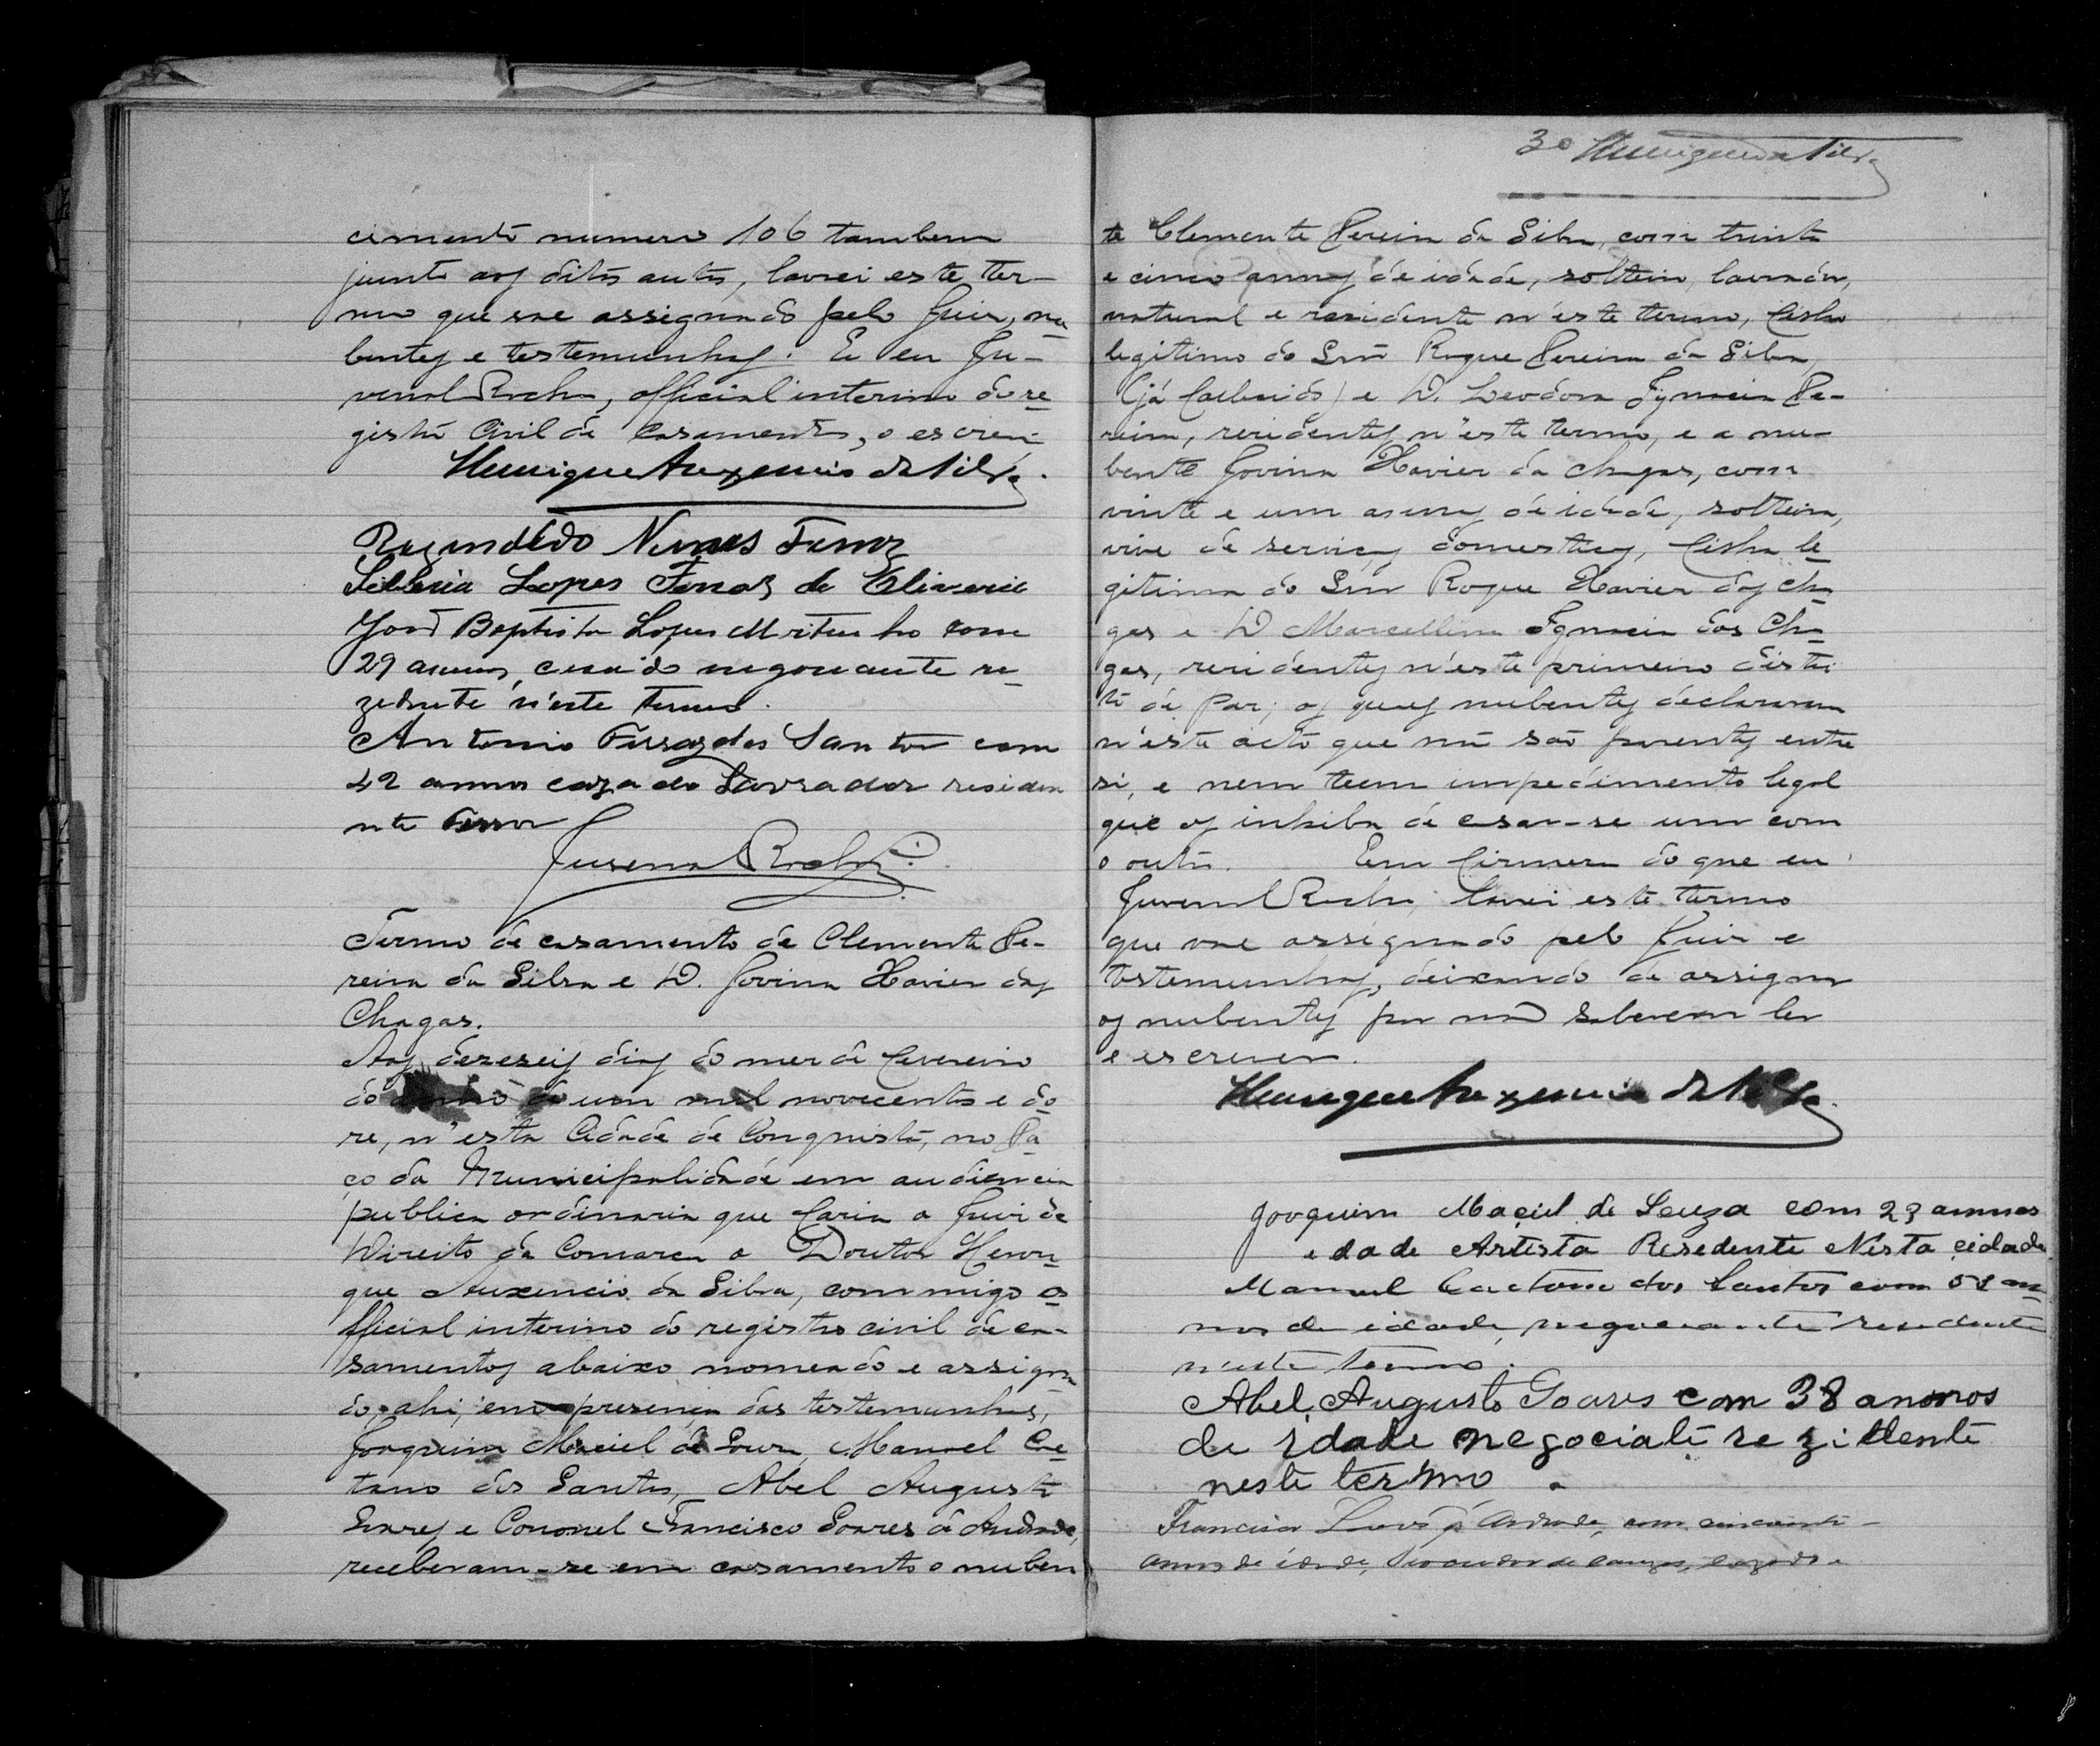 cimento numero 106 tambem
junto aos ditos autos, lavrei este ter-
mo que vae assignado pelo Juiz, nu
bentes e testemunhas. E eu Ju-
venal Rocha, official interino do re-
gistro Civil de Casamentos, o escrevi
Henrique Auxencio da Silva.
Nunes Ferraz
Lopes Ferraz de Oliveira
João Baptista Lopes com
29 annos, casado negociante re-
zedente n'este termo.
Antonio Ferraz dos Santos com
42 annos cazado Lavrador residen
nte
Juvenal Rocha
Termo de casamento de Clemente Pe-
reira da Silva e D. Jovina Xavier das
Chagas.
Aos dezeseis dias do mez de Fevereiro
do anno de um mil novecentos e do-
ze, n'esta Cidade de Conquista, no Pa-
ço da Municipalidade em audiencia
publica ordinaria que fazia o Juiz de
Direito da Comarca o Doutor Henri-
que Auxencio da Silva, commigo o-
fficial interino do registro civil de ca-
samentos abaixo nomeado e assigna-
do, ahi, em presença das testemunhas,
Joaquim Maciel de Souza, Manoel Ca-
tano dos Santos, Abel Augusto
Soares e Coronel Francisco Soares de Andrade,
receberam-se em casamento o nuben
30 Henrique da Silva
te Clemente Pereira da Silva, com trinta
e cinco annos de idade, solteiro, lavrador,
natural e residente n'este termo, filho
legitimo do Snr Roque Pereira da Silva,
(já fallecido) e D. Leodora Ignacia Pe-
reira, residentes n'este termo, e a nu-
bente Jovina Xavier da Chagas, com
vinte e um annos de idade, solteira,
vive de serviços domesticos, filha le-
gitima do Snr Roque Xavier das Cha-
gas e D Marcellina Ignacia das Cha-
gas, residentes n'este primeiro distri
to de Paz; os quaes nubentes declararam
n'este acto que não são parentes entre
si, e nem teem impedimento legal
que os inhiba de casar-se um com
o outro. Em firmeza do que eu
Juvenal Rocha, lavrei este termo
que vae assignado pelo Juiz e
testemunhas, deixando de assignar
os nubentes por não saberem ler
e escrever.
Henrique Auxencio da Silva.
Joaquim Maciel de Souza com 23 annos
edade Artista Resedente Nesta cidade
Manuel Caetano dos Santos com 52 an-
nos de idade, negociante residente
neste termo.
Abel Augusto Soares com 38 annos
de idade negociate rezidente
neste termo.
Francisco Soares de Andrade, com cincoenta
annos de idade, Procurador de cauzas, cazado e